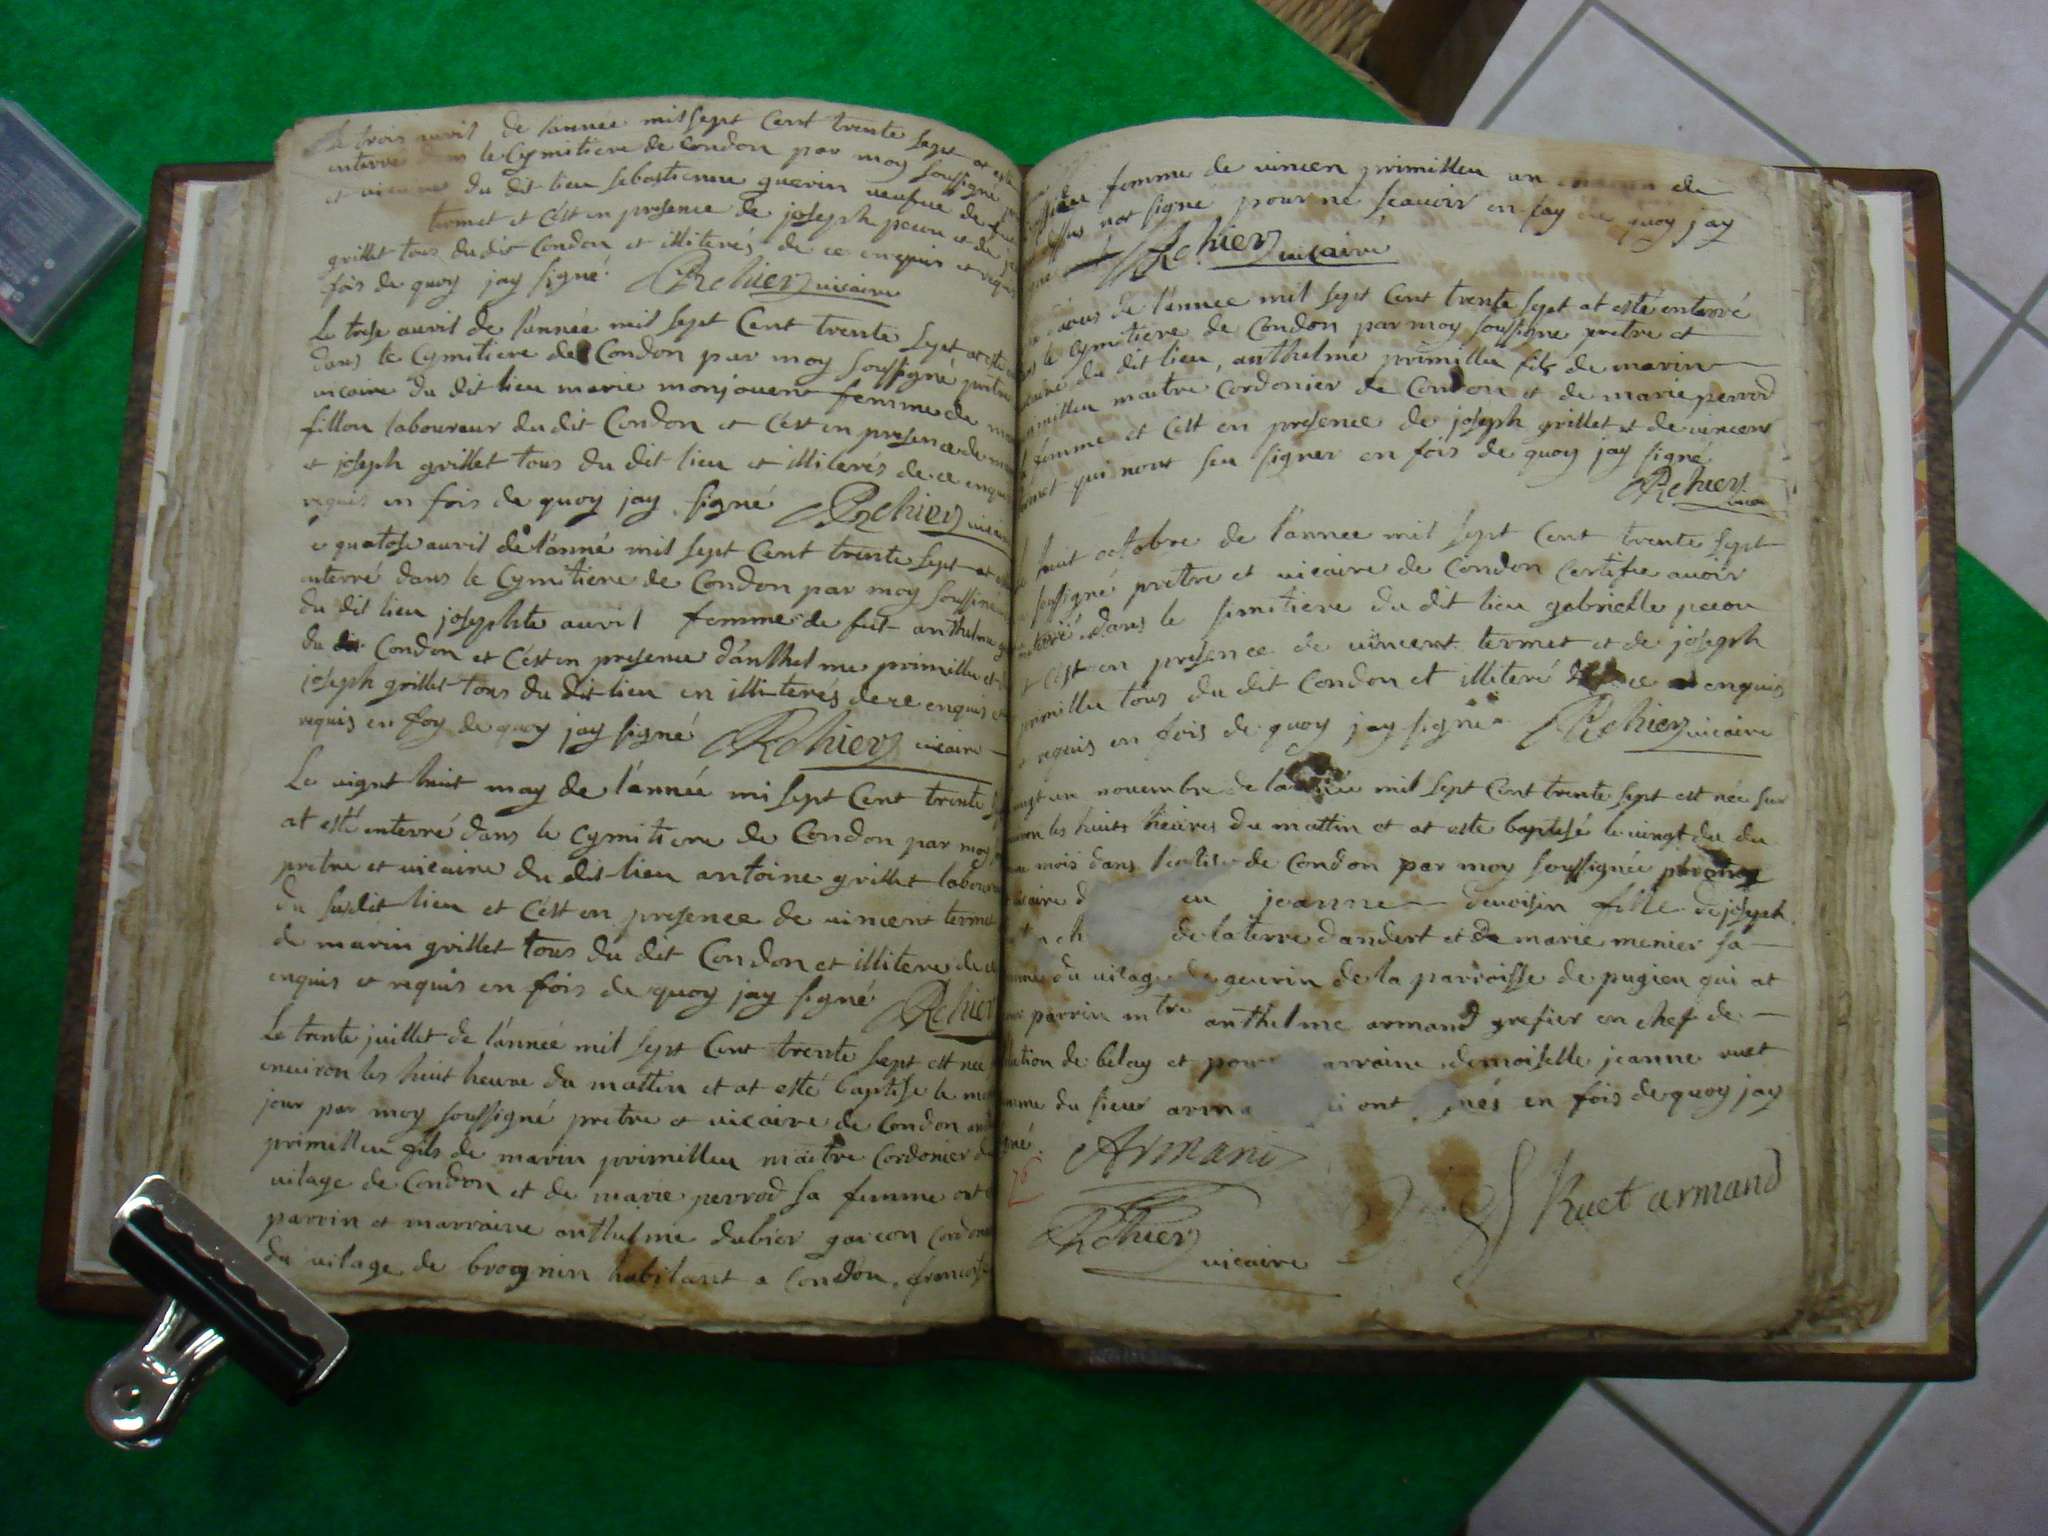 Le trois auril de l'année mil sept Cent trente sept at esté
enterré dans le Cymitiere de Condon par moy soussigné
et uicaire du dit lieu sebastienne guerin ueufue de feu
termet et c'est en presence de joseph pecou et de
grillet tous dudit Condon et illiterés de ce enquis et requis
fois de quoy jay signé Rehier uicaire
Le trese auril de l'année mil sept Cent trente sept at esté
dans le Cymitiere de Condon par moy soussigné pretre
uicaire du dit lieu marie monjouent femme de
fillon laboureur du dit Condon et c'est en presence de
et joseph grillet tous du dit lieu et illiterés de ce enquis
requis en fois de quoy jay signé Rehier uicaire
quatose auril de l'anné mil sept Cent trente sept at
enterré dans le Cymitiere de Condon par moy soussiné
du dit lieu josephte auril femme de feu anthelme
du Condon et c'est en presence d'anthelme primilleu et
joseph grillet tous du dit lieu en illiterés de ce enquis et
requis en foy de quoy jay signé Rehier uicaire
Le uignt huit may de l'année mi sept Cent trente
at esté enterré dans le Cymitiere de Condon par moy
pretre et uicaire du dit lieu antoine grillet laboureur
du sudit lieu et c'est en presence de uincent termet
de marin grillet tous du dit Condon et illitere de ce
enquis et requis en fois de quoy jay signé Rehier
Le trente juillet de l'année mil sept Cent trente sept est née
enuiron les huit heure du mattin et at esté baptise le
jour par moy soussigné pretre et uicaire de Condon
primilleu fils de marin primilleu maitre Cordonier
uilage de Condon et de marie perrod sa femme ont
parrin et marraine anthelme dubier garcon
du uilage de brognin habitant a Condon, francoise
femme de uincen primilleu un de
not signe pour ne scauoir en foy de quoy jay
Rehier uicaire
de l'année mil sept Cent trente sept at esté enterré
le Cymitiere de Condon par moy soussigne pretre et
uicaire du dit lieu, anthelme primilleu fils de marin
primilleu maitre Cordonier de Condon et de marie perrod
femme et c'est en presence de joseph grillet et de uincent
termet qui nont seu signer en fois de quoy jay signé
Rehier
huit octobre de l'annee mil sept Cent trente sept
soussigné pretre et uicaire de Condon certifie auoir
enterré dans le simitiere du dit lieu gabrielle pecou
et c'est en presence de uincent termet et de joseph
primilleu tous du dit Condon et illiteré de ce enquis
requis en fois de quoy jay signé Rehier uicaire
uingt un nouembre de l'année mil sept Cent trente sept est née sur
enuiron les huits heures du mattin et at este baptisé le uingt du du
mois dans de Condon par moy soussignée
uicaire jeanne deuoisin fille de joseph
de la terre dandert et de marie menier sa
femme du uilage de geurin de la parroisse de pugieu qui at
parrin mtre anthelme armand grefier en chef de
de belay et pour demoiselle jeanne ruet
femme du sieur ont en fois de quoy jay
signé.
Armand
Ruet armand
Rehier
uicaire